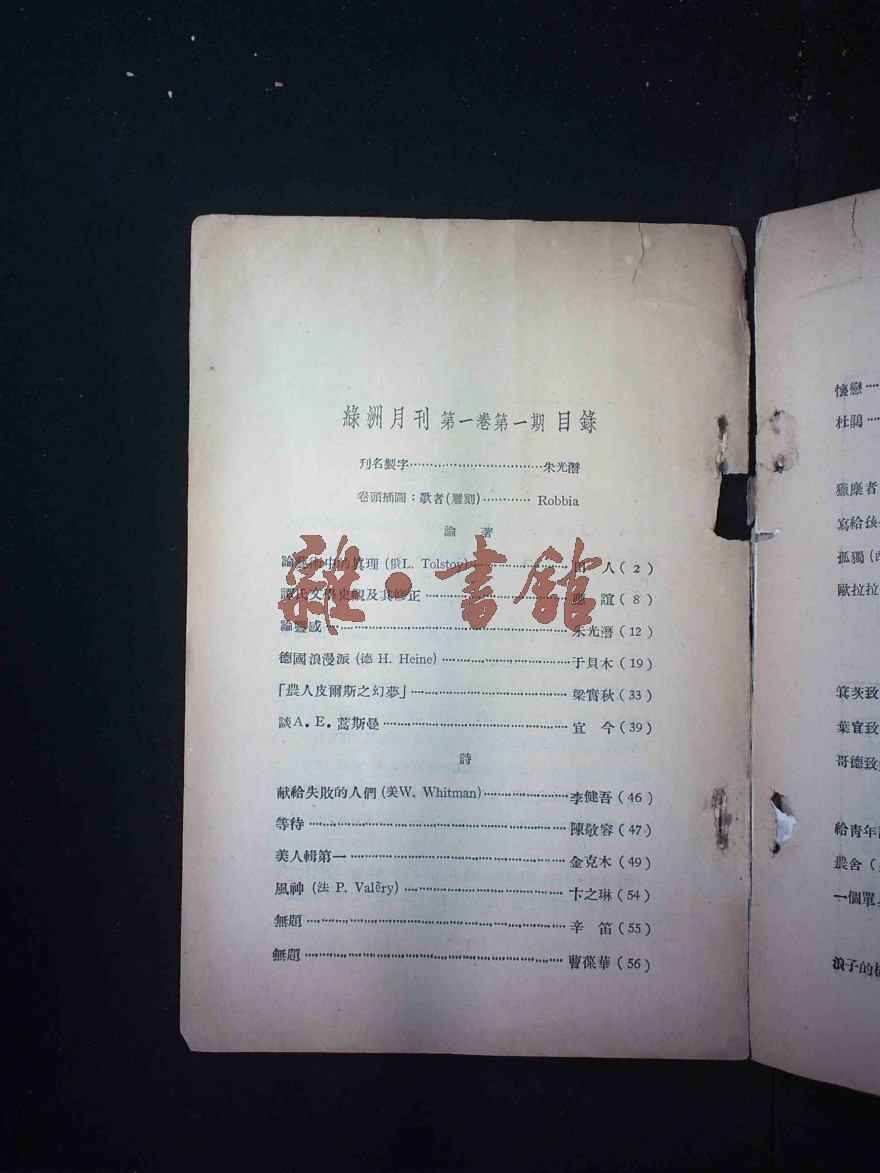 綠洲月刊 第一卷第一期 目錄
刊名製字……………………………朱光潛
卷頭插圖：歌者(雕刻)………… Robbia
論 著
論藝術中的眞理 (俄L. Tolstoy)…………………… 人 ( 2 )
氏文學史觀及其修正……………………………… 應 誼 ( 8 )
論靈感……………………………………………… 朱光潛 (12)
德國浪漫派 (德 H. Heine)………………………… 于貝木 (19)
「農人皮爾斯之幻夢」……………………………… 梁實秋 (33)
談A. E. 蒿斯曼…………………………………… 宜 今 (39)
詩
献給失敗的人們 (美W. Whitman)………………… 李健吾 (46)
等待………………………………………………… 陳敬容 (47)
美人輯第一………………………………………… 金克木 (49)
風神 (法 P. Valēry)……………………………… 卞之琳 (54)
無題………………………………………………… 辛 笛 (55)
無題………………………………………………… 曹葆華 (56)
雜·書館
懷戀……
杜鵑……
獵麋者
寫給孩
孤獨 (
歐拉拉
箕茨致
葉官致
哥德致
給靑年
農舍 (
一個單
浪子的